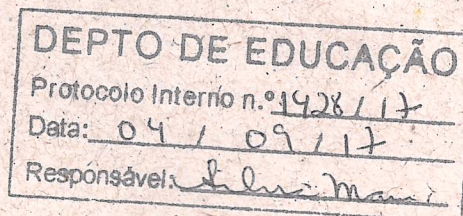 DEPTO DE EDUCAÇÃO
Protocolo Interno n.º 1428/17
Data: 04 / 09 / 17
Responsável: